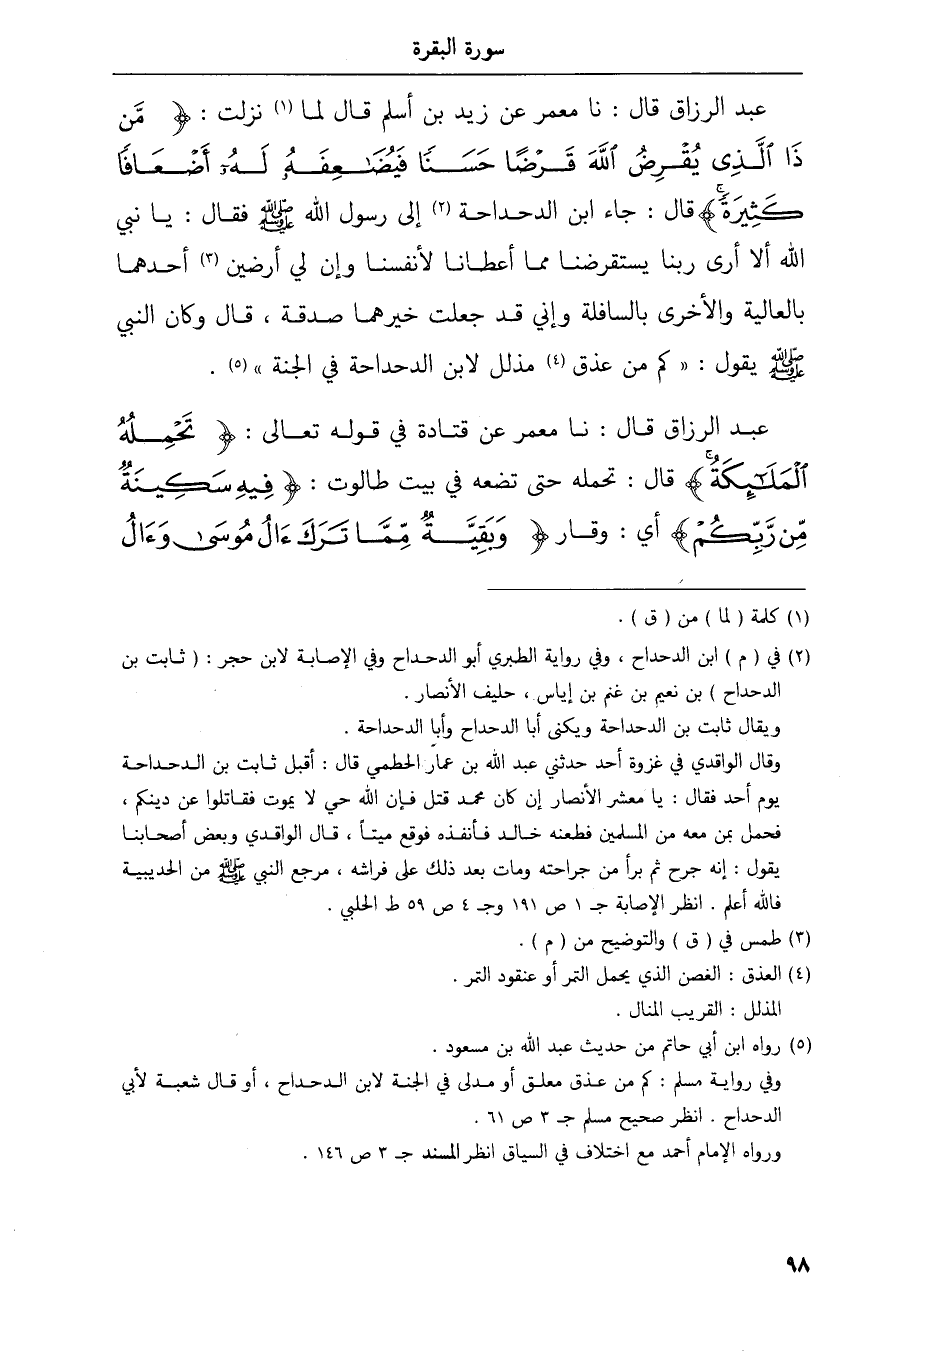 سورة البقرة
عبد الرزاق قال : نا معمر عن زيد بن أسلم قال لما (١) نزلت : ﴿ مَّن
ذَا ٱلَّذِى يُقْرِضُ ٱللَّهَ قَرْضًا حَسَنًا فَيُضَٰعِفَهُۥ لَهُۥٓ أَضْعَافًا
كَثِيرَةً ۚ ﴾ قال : جاء ابن الدحداحة (٢) إلى رسول الله ﷺ فقال : يا نبي
الله ألا أرى ربنا يستقرضنا مما أعطانا لأنفسنا وإن لي أرضين (٣) أحدهما
بالعالية والأخرى بالسافلة وإني قد جعلت خيرهما صدقة ، قال وكان النبي
ﷺ يقول : « كم من عذق (٤) مذلل لابن الدحداحة في الجنة » (٥) .
عبد الرزاق قال : نا معمر عن قتادة في قوله تعالى : ﴿ تَحْمِلُهُ
ٱلْمَلَٰٓئِكَةُ ۚ ﴾ قال : تحمله حتى تضعه في بيت طالوت : ﴿ فِيهِ سَكِينَةٌ
مِّن رَّبِّكُمْ ﴾ أي : وقار ﴿ وَبَقِيَّةٌ مِّمَّا تَرَكَ ءَالُ مُوسَىٰ وَءَالُ
(١) كلمة ( لما ) من ( ق ) .
(٢) في ( م ) ابن الدحداح ، وفي رواية الطبري أبو الدحداح وفي الإصابة لابن حجر : ( ثابت بن
الدحداح ) بن نعيم بن غنم بن إياس ، حليف الأنصار .
ويقال ثابت بن الدحداحة ويكنى أبا الدحداح وأبا الدحداحة .
وقال الواقدي في غزوة أحد حدثني عبد الله بن عمار الخطمي قال : أقبل ثابت بن الدحداحة
يوم أحد فقال : يا معشر الأنصار إن كان محمد قتل فإن الله حي لا يموت فقاتلوا عن دينكم ،
فحمل بمن معه من المسلمين فطعنه خالد فأنفذه فوقع ميتاً ، قال الواقدي وبعض أصحابنا
يقول : إنه جرح ثم برأ من جراحته ومات بعد ذلك على فراشه ، مرجع النبي ﷺ من الحديبية
فالله أعلم . انظر الإصابة جـ ١ ص ١٩١ وجـ ٤ ص ٥٩ ط الحلبي .
(٣) طمس في ( ق ) والتوضيح من ( م ) .
(٤) العذق : الغصن الذي يحمل التمر أو عنقود التمر .
المذلل : القريب المنال .
(٥) رواه ابن أبي حاتم من حديث عبد الله بن مسعود .
وفي رواية مسلم : كم من عذق معلق أو مدلى في الجنة لابن الدحداح ، أو قال شعبة لأبي
الدحداح . انظر صحيح مسلم جـ ٣ ص ٦١ .
ورواه الإمام أحمد مع اختلاف في السياق انظر المسند جـ ٣ ص ١٤٦ .
٩٨